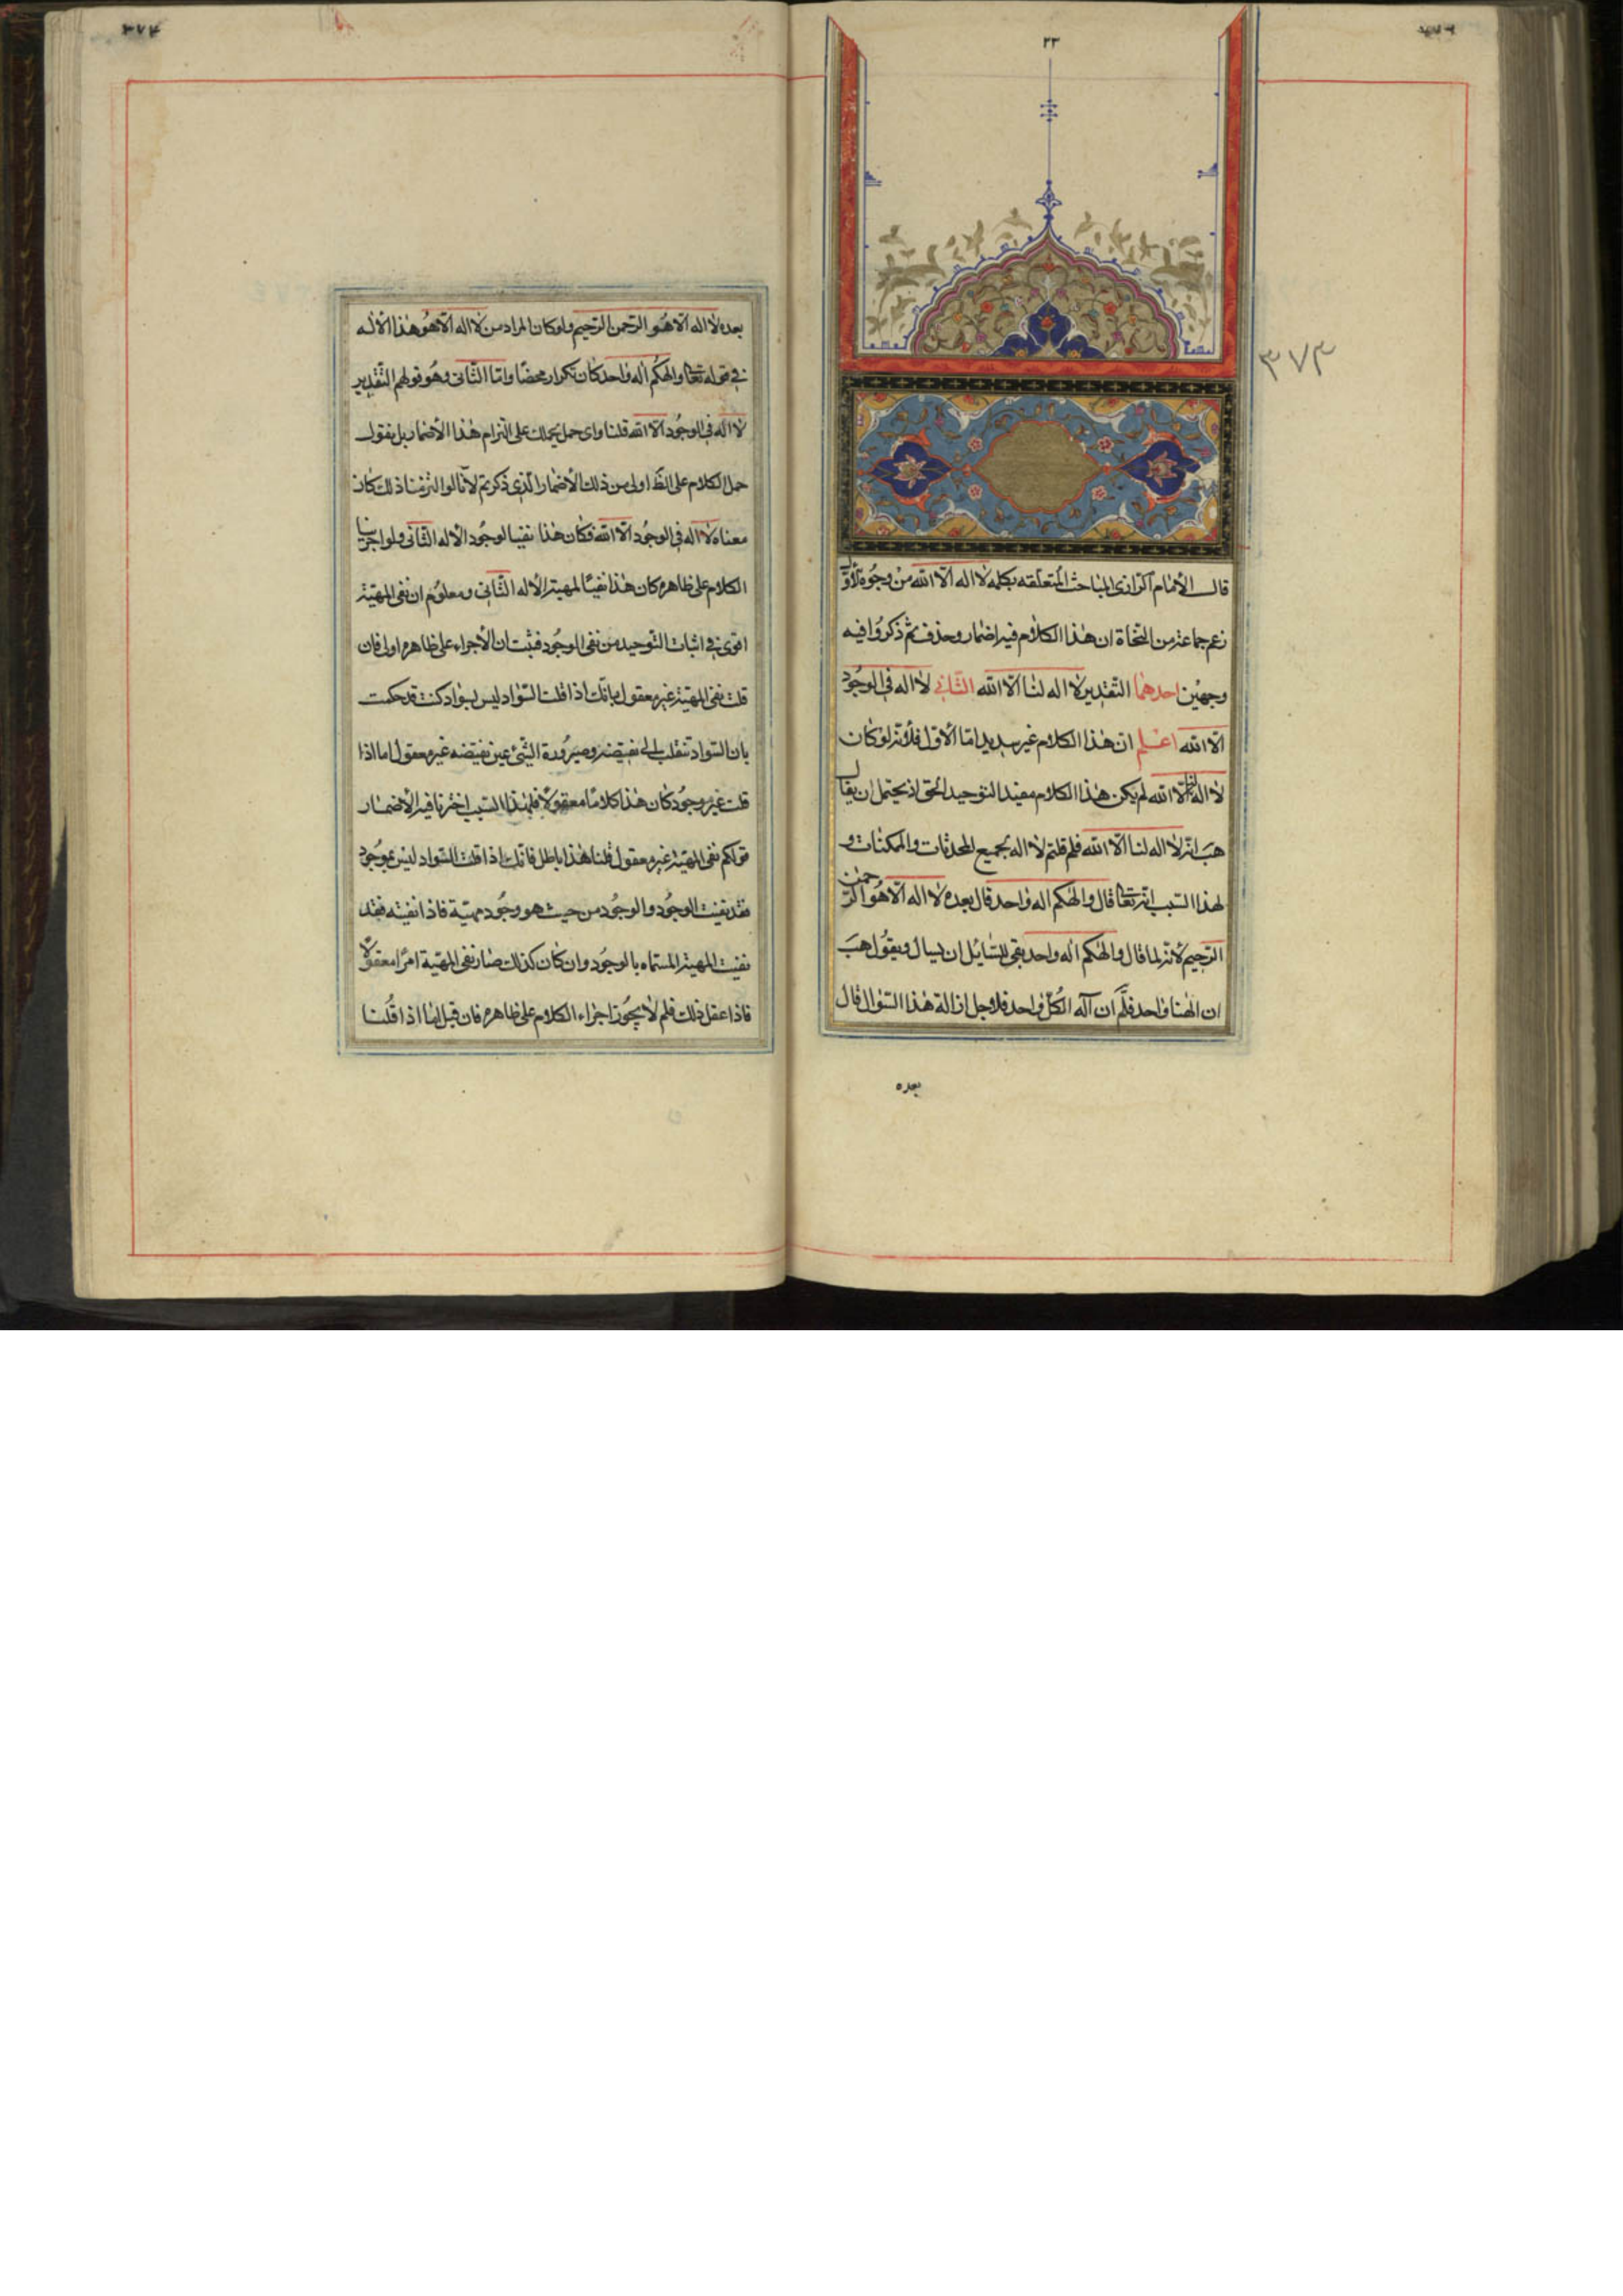 ٢٣
٣٧٣
قال الأمام الرازى المباحث المتعلقه بكلمه لا اله الا الله من وجوه الاوّل
زعم جماعة من النحاة ان هذا الكلام فيه اضمار وحذف ثم ذكروا فيه
وجهين احدهما التقدير لا اله لنا الا الله الثانى لا اله فى الوجود
الا الله اعلم ان هذا الكلام غير سديد اما الأول فلأنه لو كان
لا اله لنا الا الله لم يكن هذا الكلام مفيد التوحيد الحق اذ يحتمل ان يقال
هب انه لا اله لنا الا الله فلم قلتم لا اله بجميع المحدثات والممكنات و
لهذا السبب انه تعالى قال والهكم اله واحد قال بعده لا اله الا هو الرحمن
الرحيم لأنه لما قال والهكم اله واحد بقى للسائل ان يسال ويقول هب
ان الهنا واحد فلم ان آله الكل واحد فلاجل ازالة هذا السؤال قال
بعده
٣٧٤
بعده لا اله الا هو الرحمن الرحيم ولو كان المراد من لا اله الا هو هذا الاله
فى قوله تعالى والهكم اله واحد كان تكرار محضا واما الثانى وهو قولهم التقدير
لا اله فى الوجود الا الله قلنا واى حمل يحملك على التزام هذا الأضمار بل نقول
حمل الكلام على الظ اولى من ذلك الأضمار الذى ذكرتم لأنا لو التزمنا ذلك كان
معناه لا اله فى الوجود الا الله فكان هذا نفيا لوجود الأله الثانى ولو اجرينا
الكلام على ظاهره كان هذا نفيًا لمهية الأله الثانى ومعلوم ان نفى المهيّة
اقوى فى اثبات التوحيد من نفى الوجود فثبت ان الأجراء على ظاهره اولى فان
قلت نفى المهية غير معقول فانك اذا قلت السواد ليس بسواد كنت قد حكمت
بان السواد تنقلب الى نقيضه وصيرورة الشئ عين نقيضه غير معقول اما اذا
قلت غير موجود كان هذا كلامًا معقولاً فلهذا السبب اخترنا فيه الأضمار
قولكم نفى المهية غير معقول قلنا هذا باطل فانك اذا قلت السواد ليس بموجود
فقد نفيت الوجود والوجود من حيث هو وجود مهيّة فاذا نفيته فقد
نفيت المهية المسماه بالوجود وان كان كذلك صار نفى المهية امرًا معقولاً
فاذا عقل ذلك فلم لا يجوز اجراء الكلام على ظاهره فان قيل انا اذا قلنا